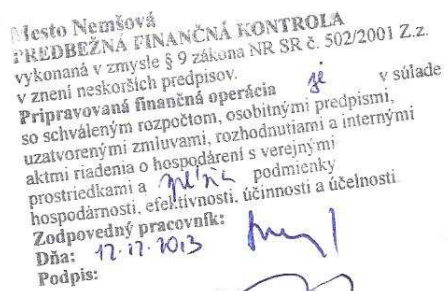 Mesto Nemšová
PREDBEŽNÁ FINANČNÁ KONTROLA
vykonaná v zmysle § 9 zákona NR SR č. 502/2001 Z.z.
v znení neskorších predpisov.
Pripravovaná finančná operácia je v súlade
so schváleným rozpočtom, osobitnými predpismi,
uzatvorenými zmluvami, rozhodnutiami a internými
aktmi riadenia o hospodárení s verejnými
prostriedkami a spĺňa podmienky
hospodárnosti, efektívnosti, účinnosti a účelnosti
Zodpovedný pracovník:
Dňa: 12.12.2013
Podpis: